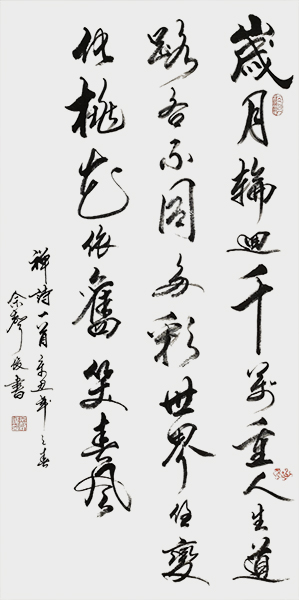 歲月輪迴千萬重人生道
路各不同多彩世界任變
化桃花依舊笑春風
禪詩一首辛丑年之春
書